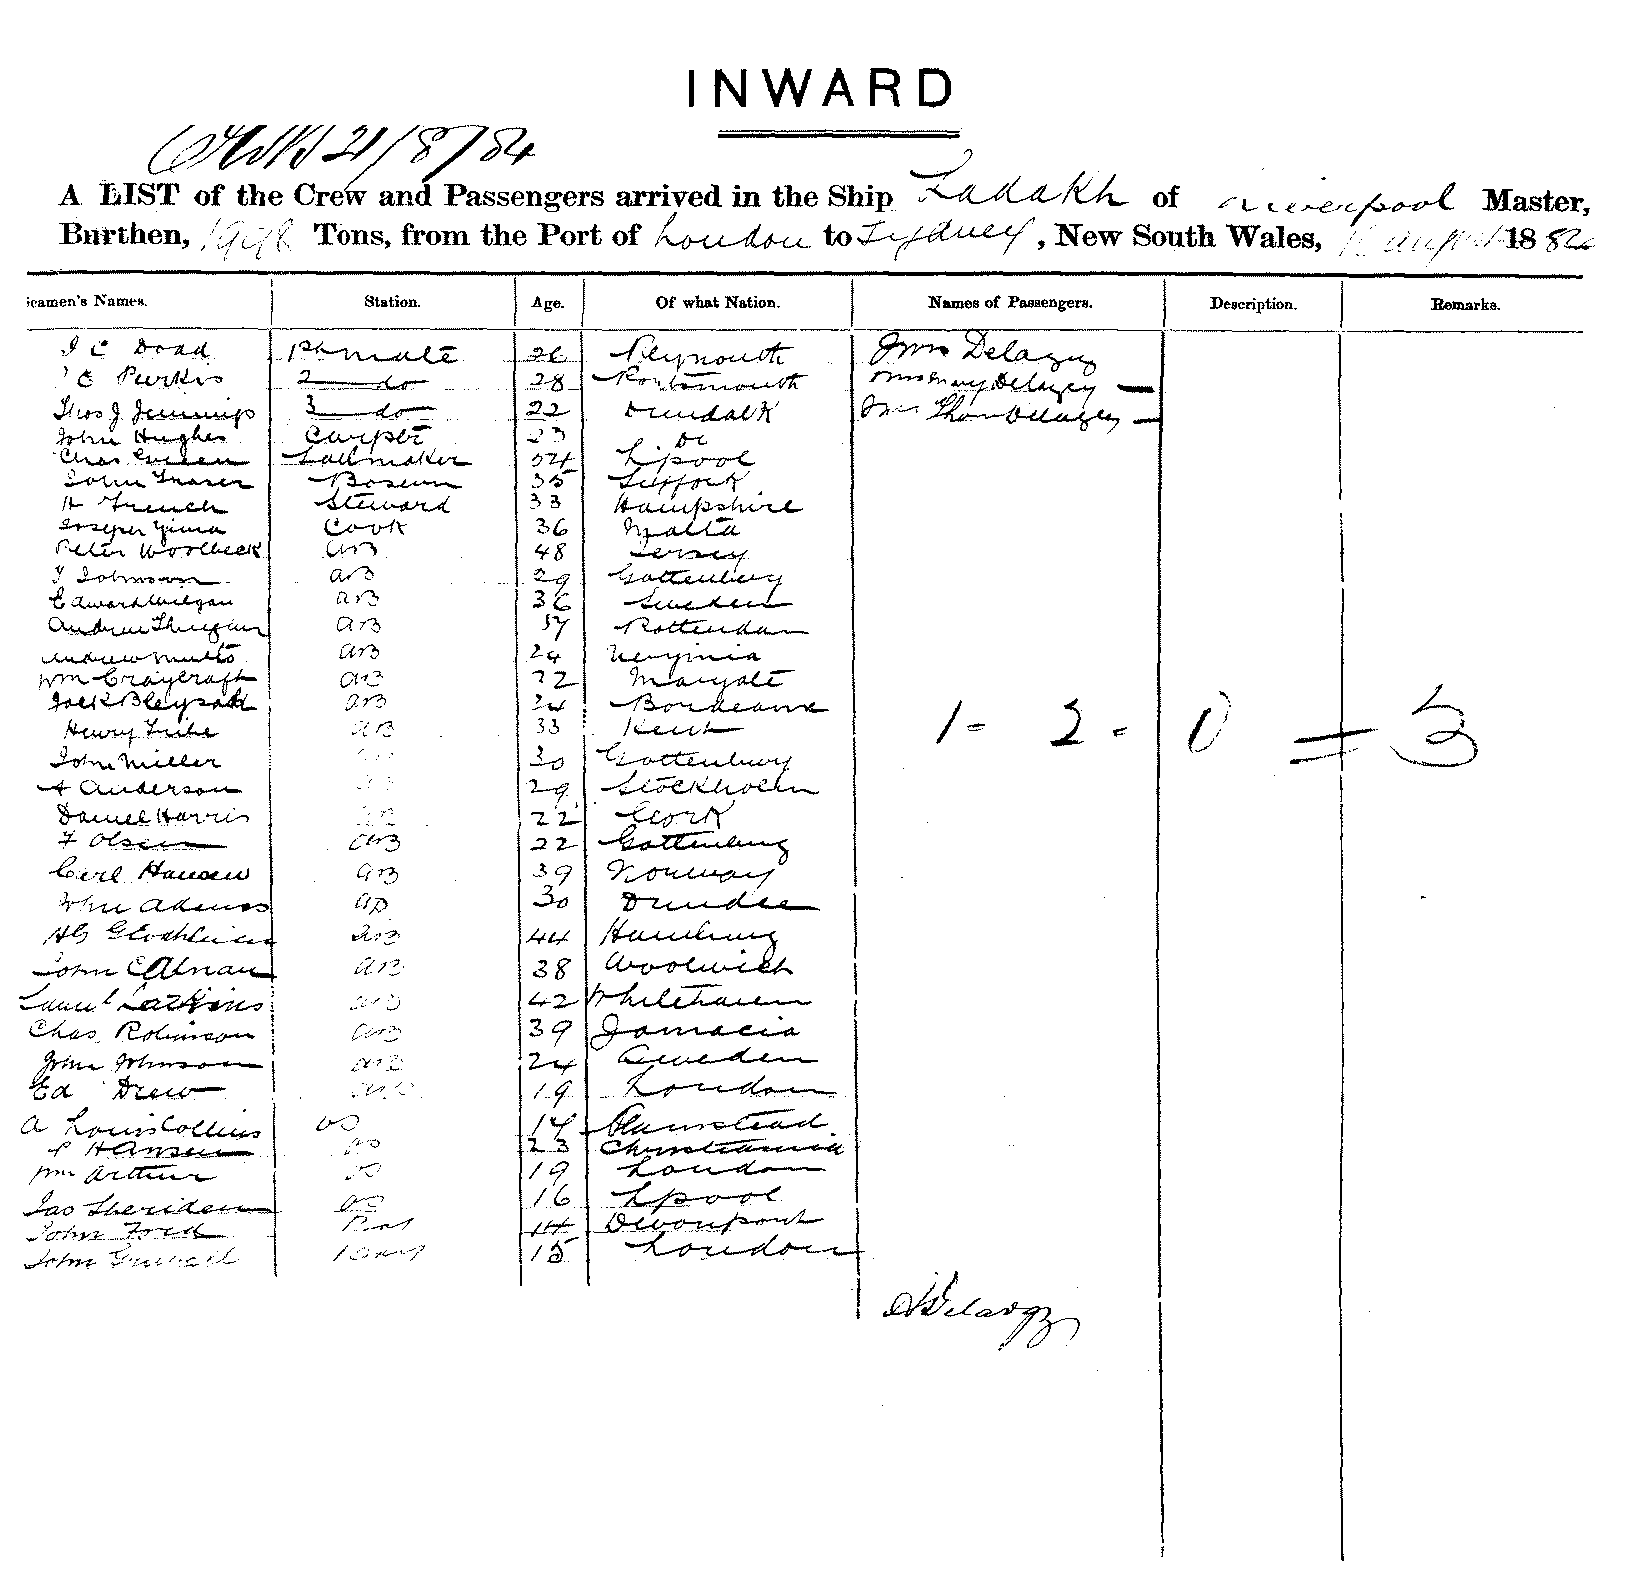 INWARD
21/8/84
A LIST of the Crew and Passengers arrived in the Ship Ladakh of Liverpool Master,
Burthen, Tons, from the Port of London to Sydney, New South Wales, August 188
Seamen's Names. Station. Age. Of what Nation. Names of Passengers. Description. Remarks.
J C Doad 1st mate 26 Plymouth Mrs Delargy
C Purkis 2 do 28 Portsmouth Miss Mary Delargy
Thos J. Jennings 3 do 22 Dundalk Thos Delargy
John Hughes Carptr 23 Do
Chas Sailmaker 54 Lpool
John Fraser Bosun 35 Suffolk
H French Steward 33 Hampshire
Cook 36 Malta
Peter Woolbeck AB 48 Jersey
J Johnson AB 29 Gottenburg
Edward AB 36 Sweden
Andrew AB 37 Rotterdam
Andrew AB 24
Wm Craycraft AB 22 Margate
AB 24 Bordeaux
Henry Tribe AB 33 Kent
John Miller 30 Gottenburg
A Anderson 29 Stockholm
Daniel Harris 22 Cork
F Olsen AB 22 Gottenburg
Carl Hansen AB 39 Norway
John Adkins AB 30 Dundee
AB 44 Hamburg
John AB 38 Woolwich
AB 42 Whitehaven
Chas Robinson AB 39 Jamacia
John Johnson AB 24 Sweden
Ed Drew 19 London
A Louis Collins OS 17 Plumstead
Hansen OS 23 Christiania
Wm Arthur OS 19 London
Jas Sheriden OS 16 Lpool
John Ford Boy 14 Devonport
John Boy 15 London
1 - 2 - 0 = 3
Delargy